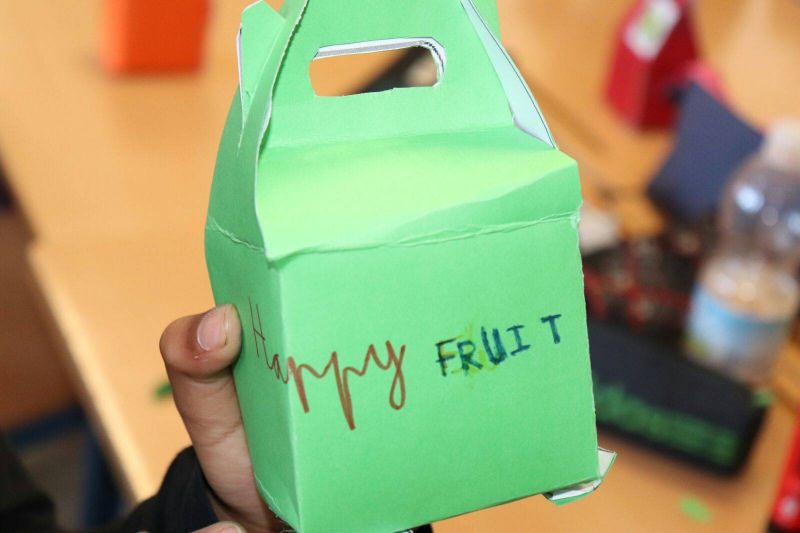 Happy FRUIT